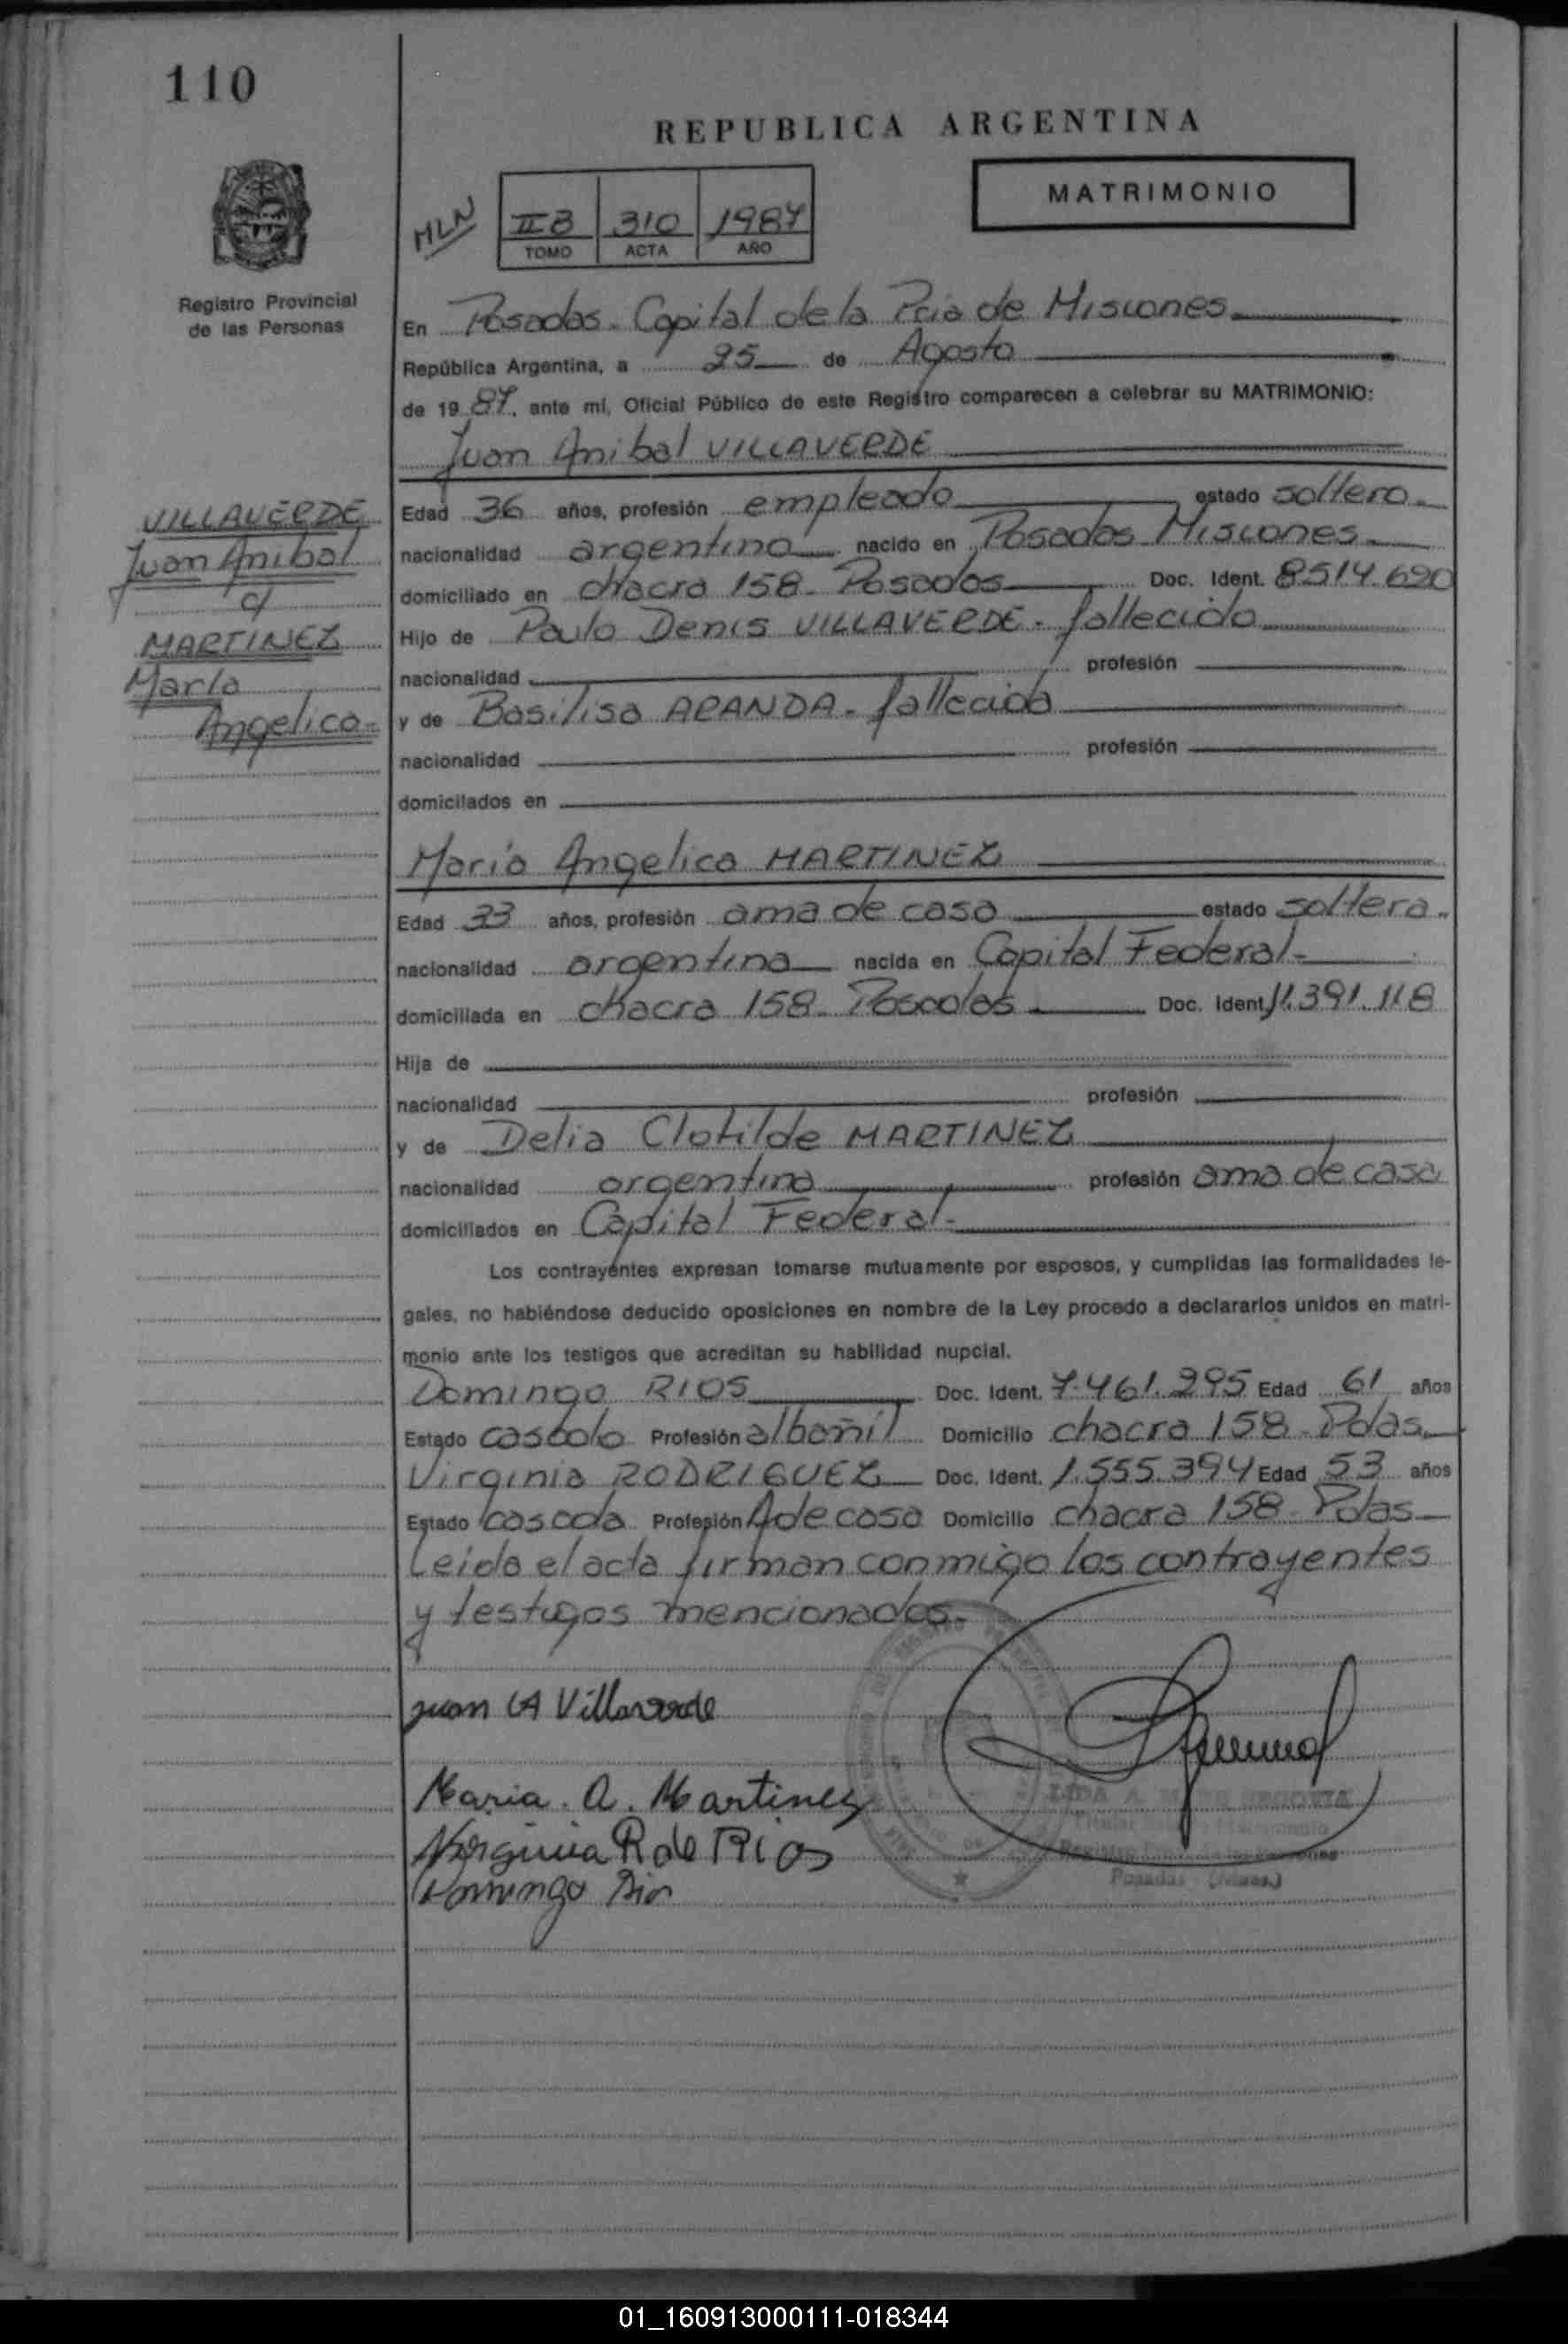 110
REPUBLICA ARGENTINA
MATRIMONIO
HLN
II B 310 1987
TOMO ACTA AÑO
Registro Provincial
de las Personas
En Posadas. Capital de la Pcia de Misiones
República Argentina, a 25 de Agosto
de 19 87, ante mí, Oficial Público de este Registro comparecen a celebrar su MATRIMONIO:
Juan Anibal VILLAVERDE
VILLAVERDE
Juan Anibal
c/
MARTINEZ
María
Angelica-
Edad 36 años, profesión empleado estado soltero.
nacionalidad argentino nacido en Posadas Misiones.
domiciliado en chacra 158. Posadas Doc. Ident. 8514.620
Hijo de Paulo Denis VILLAVERDE. fallecido
nacionalidad profesión
y de Basilisa ARANDA. fallecida
nacionalidad profesión
domicilados en
María Angelica MARTINEZ
Edad 33 años, profesión ama de casa estado soltera.
nacionalidad argentina nacida en Capital Federal-
domiciliada en chacra 158. Posadas Doc. Ident. 11.391.118
Hija de
nacionalidad profesión
y de Delia Clotilde MARTINEZ
nacionalidad argentina profesión ama de casa
domiciliados en Capital Federal-
Los contrayentes expresan tomarse mutuamente por esposos, y cumplidas las formalidades le-
gales, no habiéndose deducido oposiciones en nombre de la Ley procedo a declararlos unidos en matri-
monio ante los testigos que acreditan su habilidad nupcial.
Domingo RIOS Doc. Ident. 7.461.295 Edad 61 años
Estado casado Profesión albañil Domicilio chacra 158. Pdas.
Virginia RODRIGUEZ Doc. Ident. 1.555.394 Edad 53 años
Estado casada Profesión A de casa Domicilio chacra 158. Pdas
Leida el acta firman conmigo los contrayentes
y testigos mencionados.
Juan A Villaverde
Maria. A. Martinez
Virginia R de Rios
Domingo Rios
LIDA A.
Posadas - (Mnes.)
01_160913000111-018344